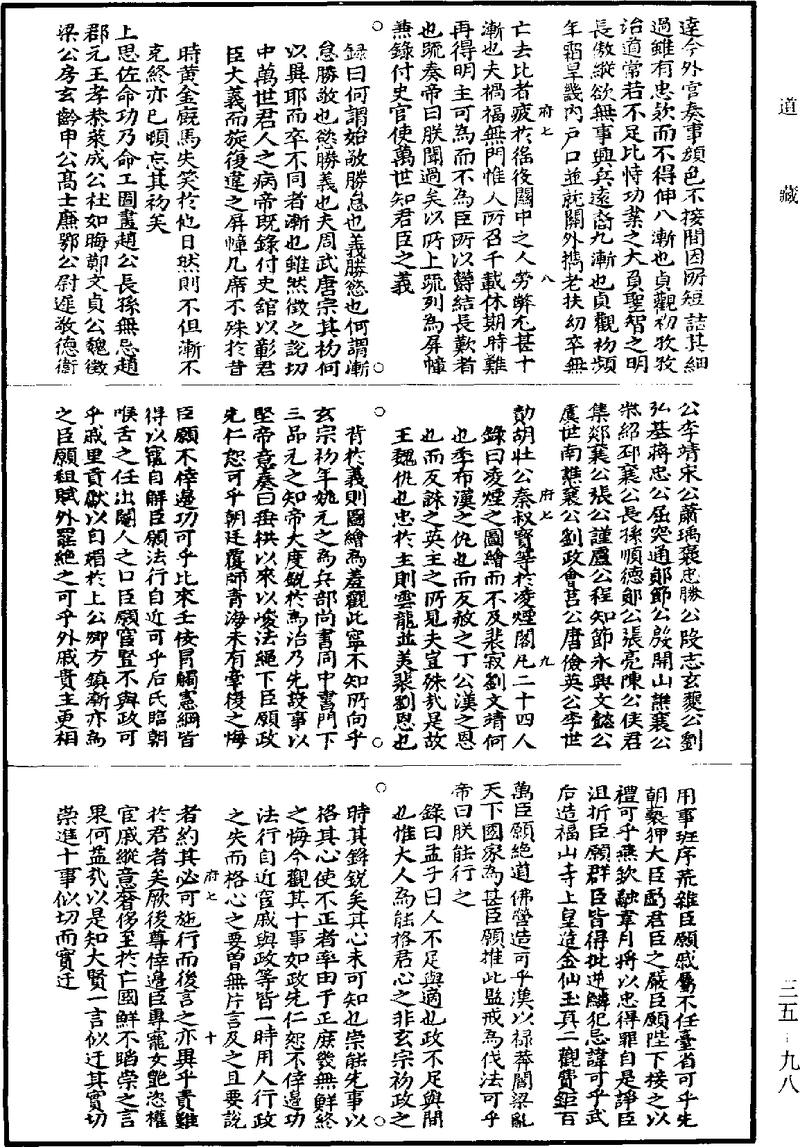 道藏
達今外官奏事顔色不接間因所短詰其細
過雖有忠款而不得伸八漸也貞觀初孜孜
治道常若不足比恃功業之大負聖智之明
長傲縱欲無事興兵遠裔九漸也貞觀初頻
年霜旱畿内戶口並就關外擕老扶幼卒無
府七 八
亡去比者疲於徭役關中之人勞弊尤甚十
漸也夫禍福無門惟人所召千載休期時難
再得明主可為而不為臣所以鬱結長歎者
也疏奏帝曰朕聞過矣以所上疏列為屏幛
兼錄付史官使萬世知君臣之義
○ ○
錄曰何謂始敬勝怠也義勝慾也何謂漸
怠勝敬也慾勝義也夫周武唐宗其初何
以異耶而卒不同者漸也雖然徵之說切
中萬世君人之病帝既錄付史舘以彰君
臣大義而旋復違之屏幛几席不殊於昔
時黃金廐馬失笑於他日然則不但漸不
克終亦已頓忘其初矣
上思佐命功乃命工圖畫趙公長孫無忌趙
郡元王孝恭萊成公杜如晦鄭文貞公魏徵
梁公房玄齡申公髙士廉鄂公尉遲敬德衛
公李靖宋公蕭瑀褒忠勝公段志玄夔公劉
弘基蔣忠公屈突通鄖節公殷開山譙襄公
柴紹邳襄公長孫順德鄖公張亮陳公侯君
集郯襄公張公謹盧公程知節永興文懿公
虞世南譙襄公劉政會莒公唐儉英公李世
府七 九
勣胡壯公秦叔寳等於凌煙閣凡二十四人
錄曰凌煙之圖繪而不及裴寂劉文靖何
也季布漢之仇也而反赦之丁公漢之恩
也而反誅之英主之所見夫豈殊哉是故
王魏仇也忠於主則雲龍並美裴劉恩也
○ ○
背於義則圖繪為羞觀此寧不知所向乎
玄宗初年姚元之為兵部尚書同中書門下
三品元之知帝大度銳於為治乃先設事以
堅帝意奏曰垂拱以來以峻法繩下臣願政
先仁恕可乎朝廷覆師青海未有牽復之悔
臣願不倖邊功可乎比來壬佞冒觸憲綱皆
得以寵自解臣願法行自近可乎后氏臨朝
喉舌之任出閹人之口臣願宦豎不與政可
乎戚里貢獻以自媚於上公卿方鎮漸亦為
之臣願租賦外罷絶之可乎外戚貴主更相
用事班序荒雜臣願戚屬不任臺省可乎先
朝褻狎大臣虧君臣之嚴臣願陛下接之以
禮可乎燕欽融韋月將以忠得罪自是諍臣
沮折臣願群臣皆得批逆鱗犯忌諱可乎武
后造福山寺上皇造金仙玉真二觀費鉅百
萬臣願絶道佛營造可乎漢以祿莽閻梁亂
天下國家為甚臣願推此鑒戒為代法可乎
帝曰朕能行之
錄曰孟子曰人不足與適也政不足與間
也惟大人為能格君心之非玄宗初政之
○ ○
時其鋒銳矣其心未可知也崇能先事以
格其心使不正者率由于正庶幾無鮮終
之悔今觀其十事如政先仁恕不倖邊功
法行自近宦戚與政等皆一時用人行政
之失而格心之要曽無片言及之且要說
府七 十
者約其必可施行而後言之亦異乎責難
於君者矣厥後尊倖邊臣專寵女艷恣權
宦戚縱意奢侈至於亡國鮮不暗崇之言
果何益哉以是知大賢一言似迂其實切
崇進十事似切而實迂
三五─九八